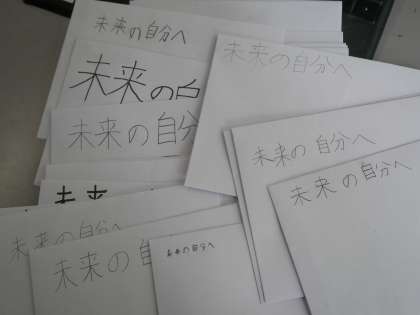 未来の自分へ
未来の自分へ
未来の白
未来の自分
未来の自分へ
未来
未来の自分へ
未来の自分へ
未来の自
未来の自分へ